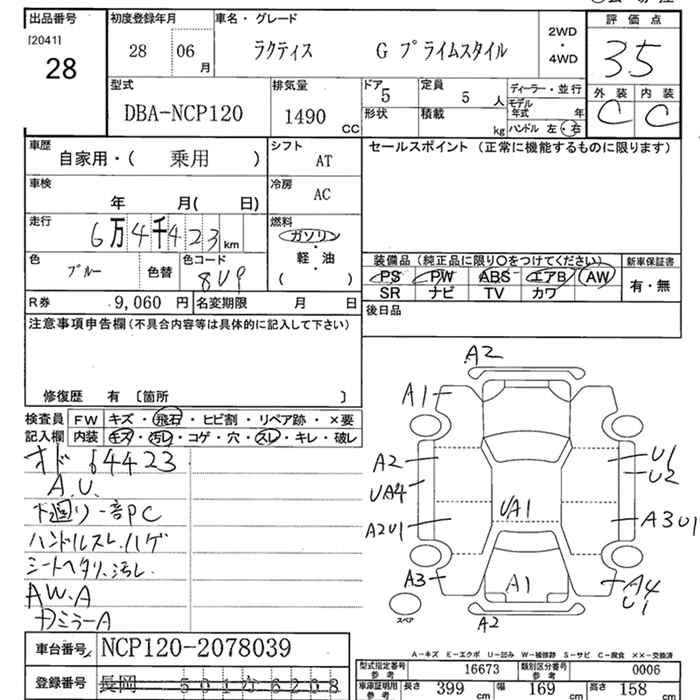 出品番号 初度登録年月 車名・グレード 2WD・4WD 評価点
[2041]
28 28 06月 ラクティス G プライムスタイル 3.5
型式 DBA-NCP120 排気量 1490 CC
ドア 5 定員 5 人 ディーラー・並行
形状 積載 kg モデル年式 年 ハンドル 左・右
外装 内装
C C
車歴 自家用・( 乗用 ) シフト AT
セールスポイント (正常に機能するものに限ります)
車検 年 月( 日) 冷房 AC
走行 6万4千423km 燃料 ガソリン・軽・油 ( )
色 ブルー 色替 色コード 8U9
装備品 (純正品に限り○をつけてください) 新車保証書
PS PW ABS エアB AW 有・無
SR ナビ TV カワ
R券 9,060 円 名変期限 月 日
後日品
注意事項申告欄(不具合内容等は具体的に記入して下さい)
修復歴 有 [箇所 ]
検査員 FW キズ・飛石・ヒビ割・リペア跡・×要
記入欄 内装 キズ・汚レ・コゲ・穴・スレ・キレ・破レ
オド 64423
A.U.
下廻リ一部PC
ハンドルスレ.ハゲ
シートヘタリ.汚レ.
AW.A
カミラーA
A2
A1
A2 U1
UA4 U2
UA1
A2U1 A3U1
A3 A1 A4
U1
A2
スペア
A-キズ E-エクボ U-凹み W-補修跡 S-サビ C-腐食 ××-交換済
車台番号 NCP120-2078039
登録番号 長岡 501な6208
型式指定番号 参考 16673 類別区分番号 参考 0006
車庫証明用 参考 長さ 399 cm 幅 169 cm 高さ 158 cm